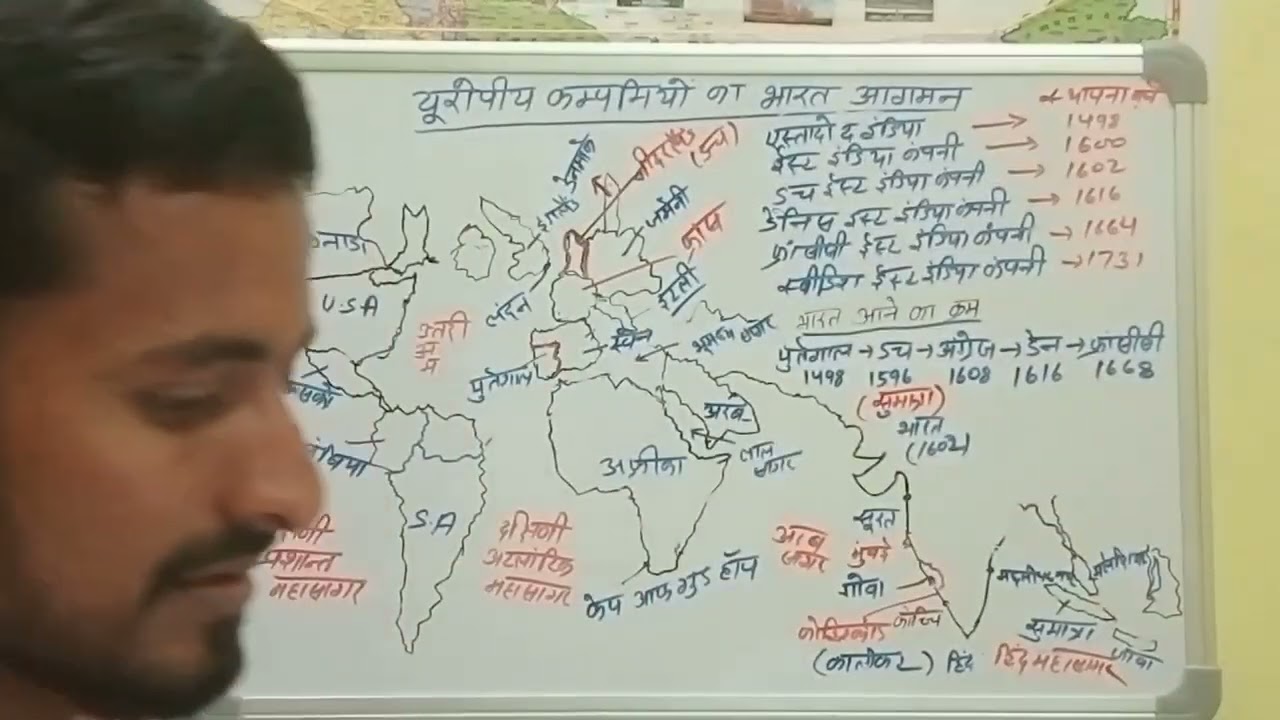 यूरोपीय कम्पनियों का भारत आगमन
स्थापना वर्ष
एस्तादो द इंडिया → 1498
ईस्ट इंडिया कंपनी → 1600
डच ईस्ट इंडिया कंपनी → 1602
डेनिस ईस्ट इंडिया कंपनी → 1616
फ्रांसीसी ईस्ट इंडिया कंपनी → 1664
स्वीडिश ईस्ट इंडिया कंपनी → 1731
भारत आने का क्रम
पुर्तगाल → डच → अंग्रेज → डेन → फ्रांसीसी
1498 1596 1608 1616 1668
(सुमात्रा)
भारत
(1602)
डेनमार्क
नीदरलैंड
(डच)
इंग्लैंड
जर्मनी
फ्रांस
इटली
लंदन
स्पेन
भूमध्य सागर
पुर्तगाल
U.S.A
उत्तरी
अ
प्र
अरब
लाल
सागर
अफ्रीका
S.A
प्रशान्त
महासागर
दक्षिणी
अटलांटिक
महासागर
केप आफ गुड हॉप
अरब
सागर
सूरत
मुंबई
गोवा
कोच्चि
(कालीकट)
हिंद
हिंद महासागर
सुमात्रा
जावा